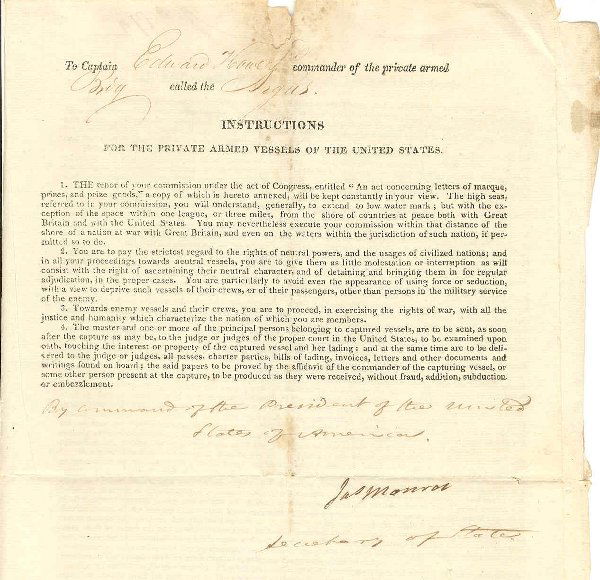 To Captain Edward commander of the private armed
Brig called the Argus.
INSTRUCTIONS
FOR THE PRIVATE ARMED VESSELS OF THE UNITED STATES.
1. THE tenor of your commission under the act of Congress, entitled "An act concerning letters of marque,
prizes, and prize goods," a copy of which is hereto annexed, will be kept constantly in your view. The high seas,
referred to in your commission, you will understand, generally, to extend to low water mark; but with the ex-
ception of the space within one league, or three miles, from the shore of countries at peace both with Great
Britain and with the United States. You may nevertheless execute your commission within that distance of the
shore of a nation at war with Great Britain, and even on the waters within the jurisdiction of such nation, if per-
mitted so to do.
2. You are to pay the strictest regard to the rights of neutral powers, and the usages of civilized nations; and
in all your proceedings towards neutral vessels, you are to give them as little molestation or interruption as will
consist with the right of ascertaining their neutral character, and of detaining and bringing them in for regular
adjudication, in the proper cases. You are particularly to avoid even the appearance of using force or seduction,
with a view to deprive such vessels of their crews, or of their passengers, other than persons in the military service
of the enemy.
3. Towards enemy vessels and their crews, you are to proceed, in exercising the rights of war, with all the
justice and humanity which characterize the nation of which you are members.
4. The master and one or more of the principal persons belonging to captured vessels, are to be sent, as soon
after the capture as may be, to the judge or judges of the proper court in the United States, to be examined upon
oath, touching the interest or property of the captured vessel and her lading: and at the same time are to be deli-
vered to the judge or judges, all passes, charter parties, bills of lading, invoices, letters and other documents and
writings found on board; the said papers to be proved by the affidavit of the commander of the capturing vessel, or
some other person present at the capture, to be produced as they were received, without fraud, addition, subduction
or embezzlement.
By command of the President of the United
States of America.
Jas Monroe
Secretary of State.